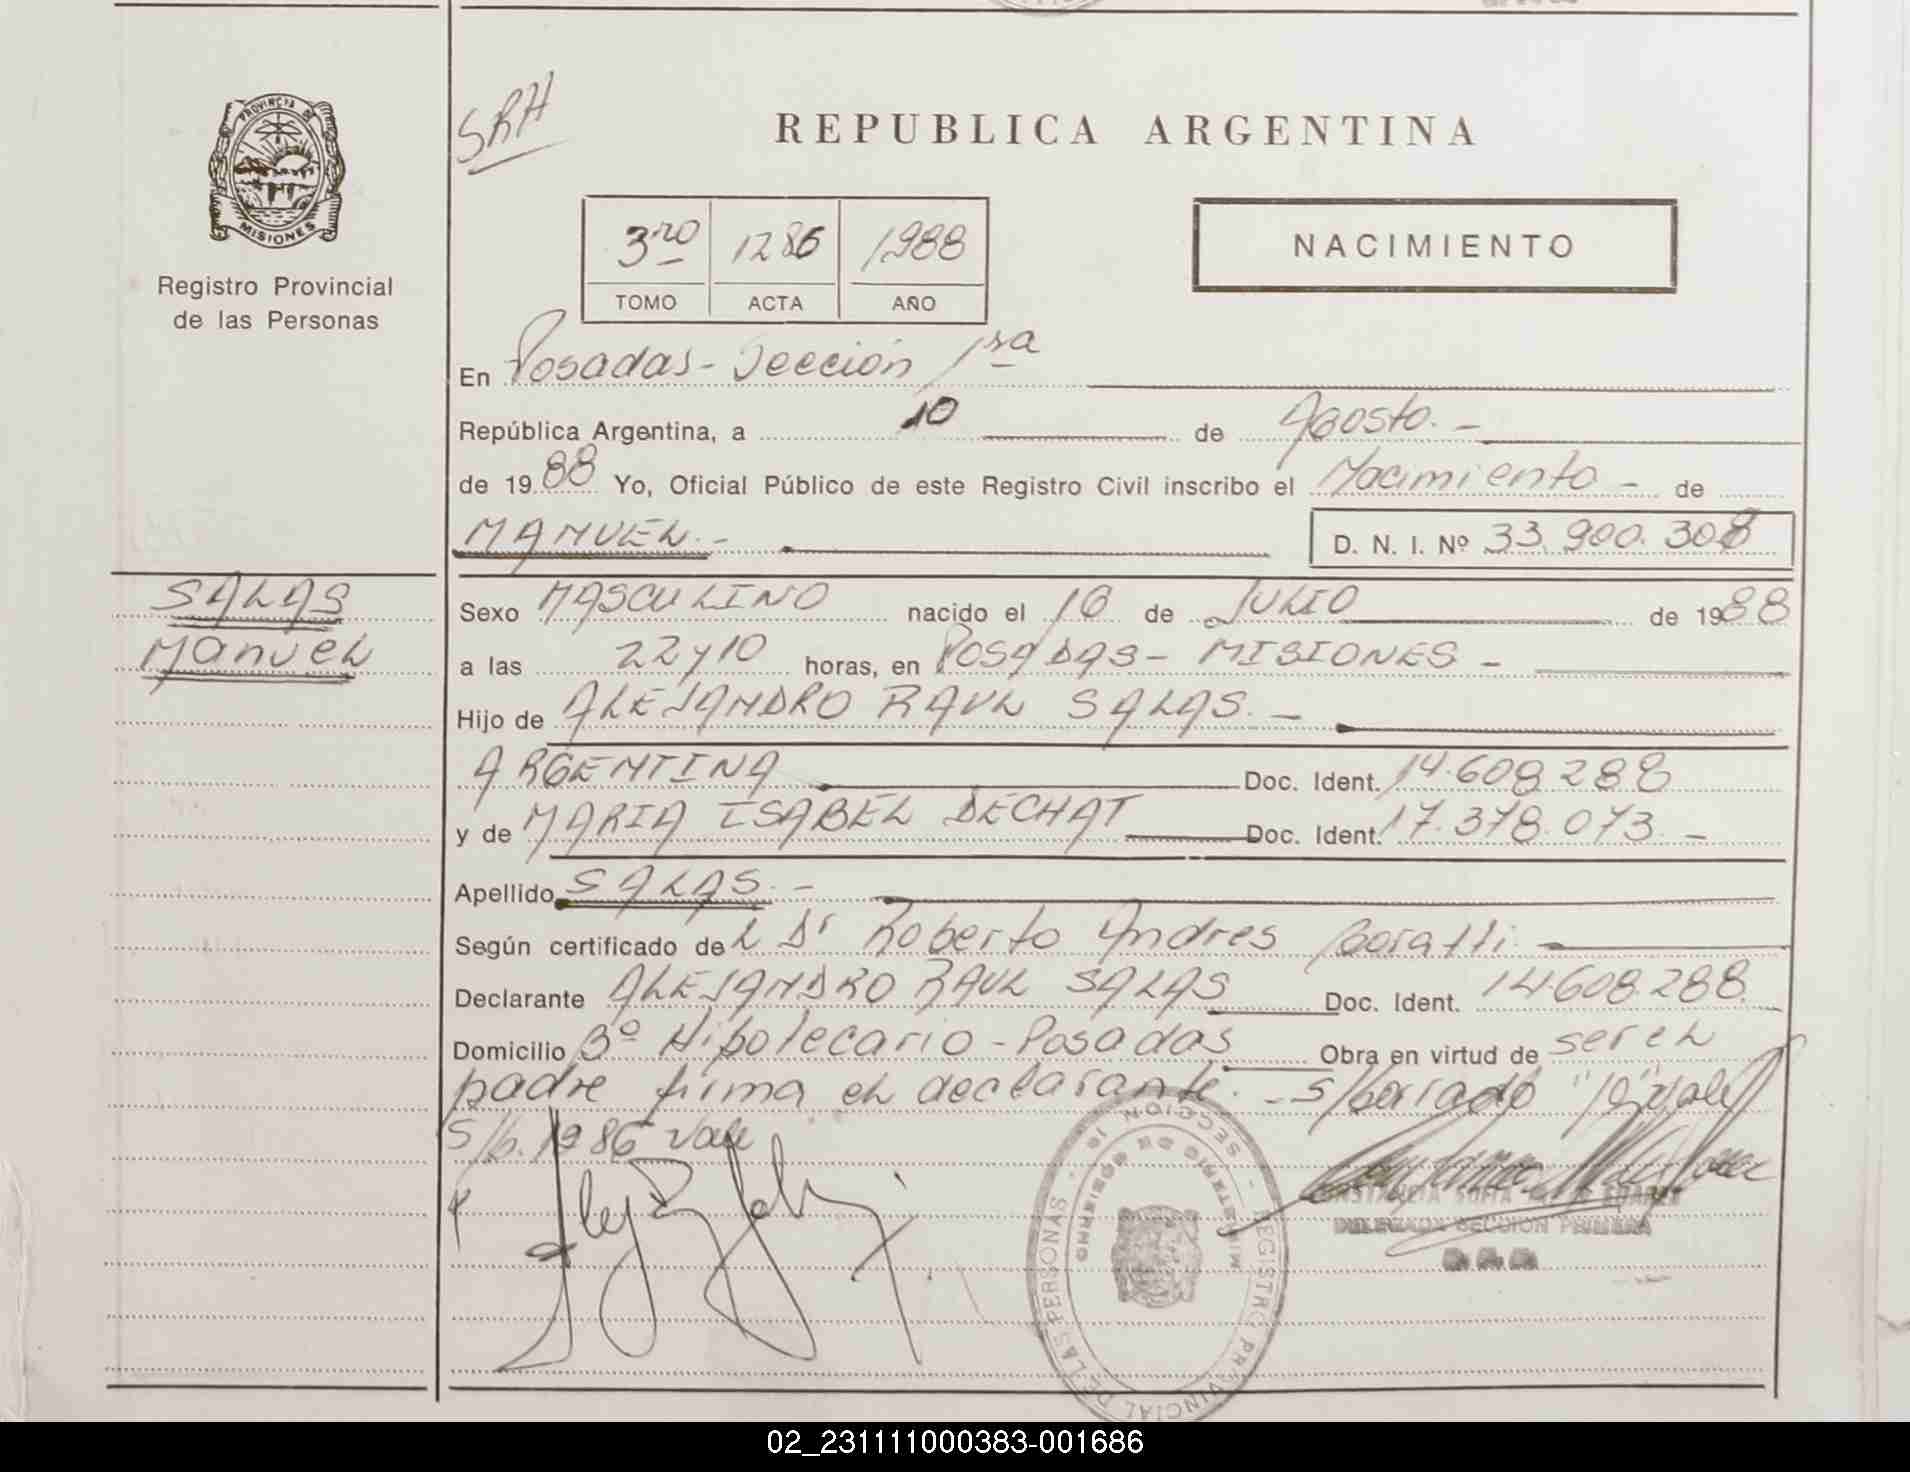 PROVINCIA DE
MISIONES
Registro Provincial
de las Personas
SRH
REPUBLICA ARGENTINA
3ro 1286 1988
TOMO ACTA AÑO
NACIMIENTO
En Posadas - Sección 1ra
República Argentina, a 10 de Agosto. -
de 1988 Yo, Oficial Público de este Registro Civil inscribo el Nacimiento - de
MANUEL. - D. N. I. Nº 33.900.308
SALAS
Manuel
Sexo MASCULINO nacido el 16 de JULIO de 1988
a las 22 y 10 horas, en POSADAS - MISIONES -
Hijo de ALEJANDRO RAUL SALAS. -
ARGENTINA Doc. Ident. 14.608.288
y de MARIA ISABEL DECHAT Doc. Ident. 17.378.073. -
Apellido SALAS. -
Según certificado del Dr Roberto Andres
Declarante ALEJANDRO RAUL SALAS Doc. Ident. 14.608.288
Domicilio 3º Hipotecario - Posadas Obra en virtud de ser el
padre firma el declarante. - S/ "10" vale
S/b. 1986 vale
SECCION 1a - REGISTRO PROVINCIAL DE LAS PERSONAS -
MINISTERIO DE GOBIERNO
CONSTANCIA SOFIA
DELEGADA SECCION PRIMERA
02_231111000383-001686